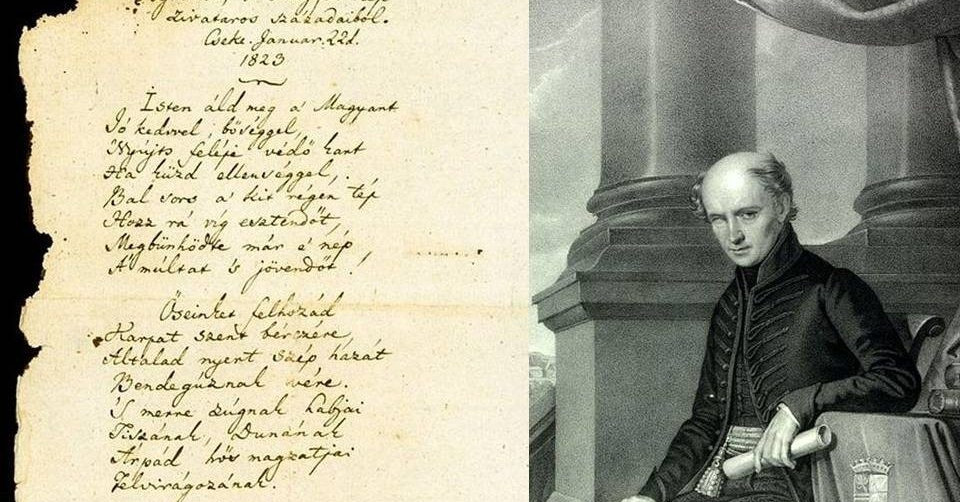 zivataros századaiból.
Cseke. Januar. 22d.
1823
Isten áld meg a' Magyart
Jó kedvvel, bőséggel,
Nyújts feléje védő kart
Ha küzd ellenséggel,
Bal sors a' kit régen tép
Hozz rá víg esztendőt,
Megbünhödte már e' nép
A' múltat 's jövendőt!
Őseinket felhozád
Kárpat szent bérczére,
Általad nyert szép hazát
Bendegúznak vére.
'S merre zúgnak habjai
Tiszának, Dunának
Árpád hős magzatjai
Felvirágozának.